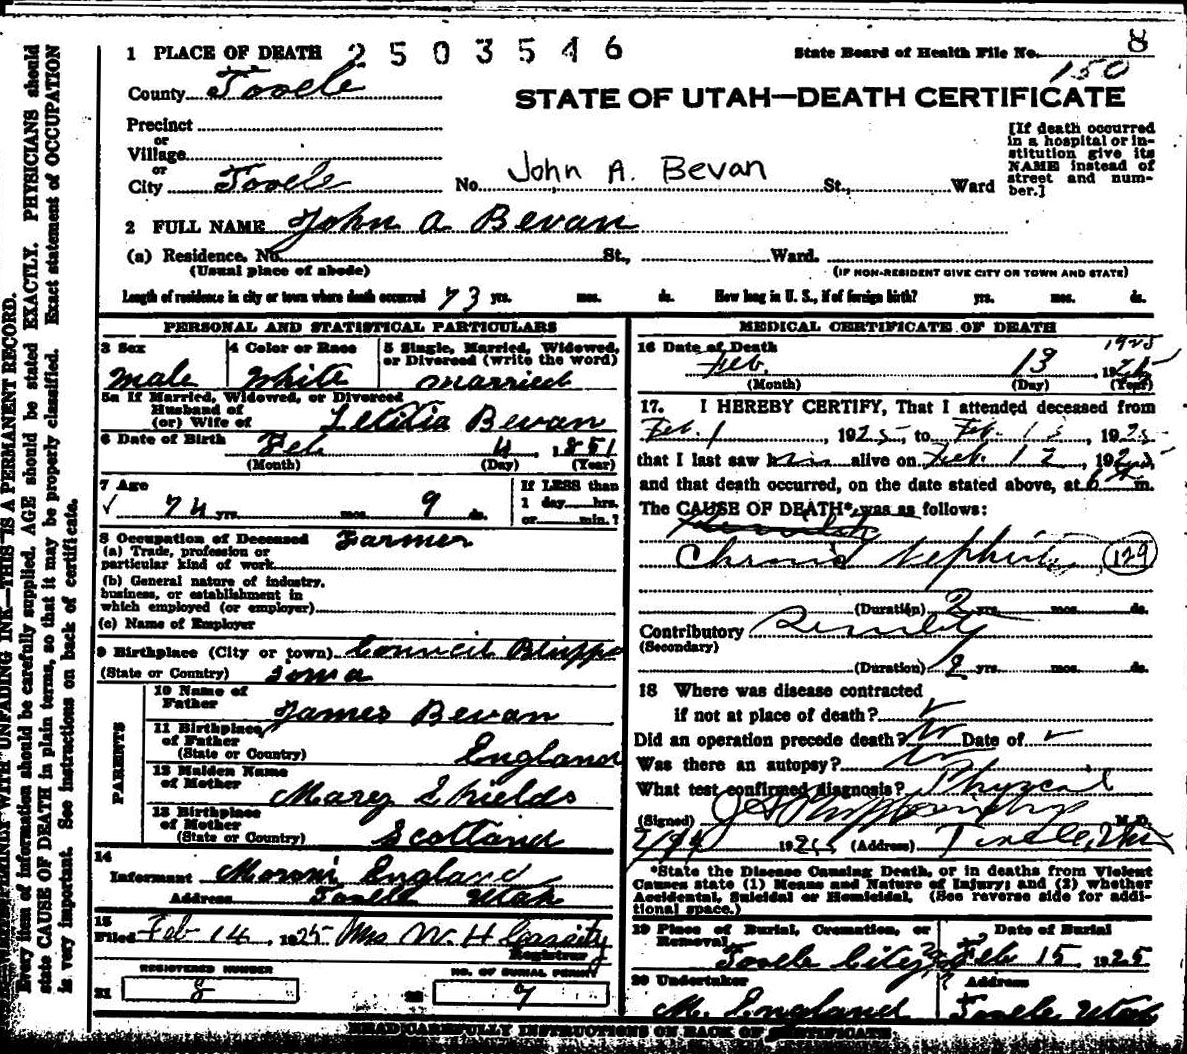 1 PLACE OF DEATH 2503546
State Board of Health File No. 8
150
County Tooele
STATE OF UTAH—DEATH CERTIFICATE
Precinct
or
Village
or
City Tooele No. John A. Bevan St., Ward
[If death occurred
in a hospital or in-
stitution give its
NAME instead of
street and num-
ber.]
2 FULL NAME John A Bevan
(a) Residence. No. St., Ward.
(Usual place of abode)
(IF NON-RESIDENT GIVE CITY OR TOWN AND STATE)
Length of residence in city or town where death occurred 73 yrs. mos. ds. How long in U. S., if of foreign birth? yrs. mos. ds.
PERSONAL AND STATISTICAL PARTICULARS
3 Sex
Male
4 Color or Race
White
5 Single, Married, Widowed,
or Divorced (write the word)
married
5a If Married, Widowed, or Divorced
Husband of
(or) Wife of Letitia Bevan
6 Date of Birth Feb 4, 1851
(Month) (Day) (Year)
7 Age
74 yrs. mos. 9 ds.
If LESS than
1 day hrs.
or min.?
8 Occupation of Deceased Farmer
(a) Trade, profession or
particular kind of work
(b) General nature of industry,
business, or establishment in
which employed (or employer)
(c) Name of Employer
9 Birthplace (City or town) Council Bluffs
(State or Country) Iowa
PARENTS
10 Name of
Father James Bevan
11 Birthplace
of Father
(State or Country) England
12 Maiden Name
of Mother Mary Shields
13 Birthplace
of Mother
(State or Country) Scotland
14
Informant Moroni England
Address Tooele Utah
15
Filed Feb 14, 1925 Mrs W. H. Cassity
Registrar
REGISTERED NUMBER
21 8
NO. OF BURIAL PERMIT
22 7
MEDICAL CERTIFICATE OF DEATH
16 Date of Death 1925
Feb. 13, 1925
(Month) (Day) (Year)
17. I HEREBY CERTIFY, That I attended deceased from
Feb. 1, 1925, to Feb. 13, 1925
that I last saw him alive on Feb. 12, 1925
and that death occurred, on the date stated above, at 6 m.
The CAUSE OF DEATH* was as follows:
Chronic Nephritis 129
(Duration) 2 yrs. mos. ds.
Contributory Senility
(Secondary)
(Duration) 2 yrs. mos. ds.
18 Where was disease contracted
if not at place of death?
Did an operation precede death? No Date of
Was there an autopsy? No
What test confirmed diagnosis? Physical
(Signed) M. D.
1925 (Address) Tooele, Utah
*State the Disease Causing Death, or in deaths from Violent
Causes state (1) Means and Nature of Injury; and (2) whether
Accidental, Suicidal or Homicidal. (See reverse side for addi-
tional space.)
19 Place of Burial, Cremation, or
Removal
Tooele City
Date of Burial
Feb 15 1925
20 Undertaker
M. England
Address
Tooele Utah
READ CAREFULLY INSTRUCTIONS ON BACK OF CERTIFICATE.
WITH UNFADING INK—THIS IS A PERMANENT RECORD.
Every item of information should be carefully supplied. AGE should be stated EXACTLY. PHYSICIANS should
state CAUSE OF DEATH in plain terms, so that it may be properly classified. Exact statement of OCCUPATION
is very important. See instructions on back of certificate.